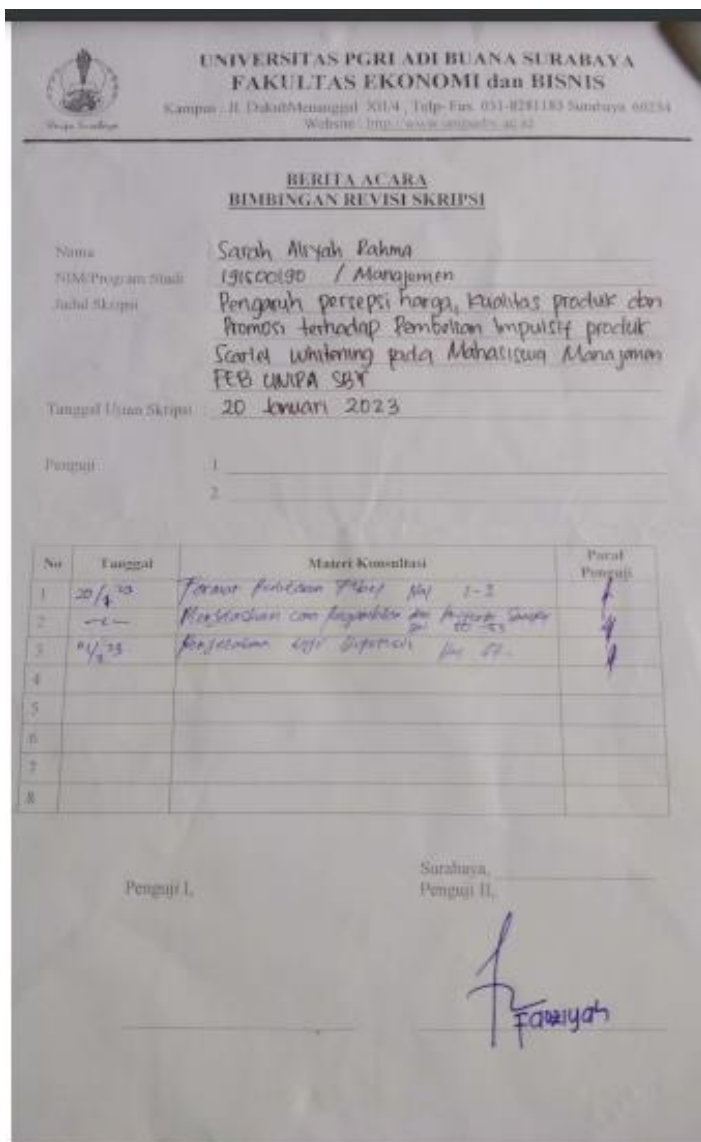 UNIVERSITAS PGRI ADI BUANA SURABAYA
FAKULTAS EKONOMI dan BISNIS
Kampus : Jl. DukuhMenanggal XII/4, Telp- Fax. 031-8281183 Surabaya 60234
Website : http://www.unipasby.ac.id
BERITA ACARA
BIMBINGAN REVISI SKRIPSI
Nama Sarah Aliyah Rahma
NIM/Program Studi 191500190 / Manajemen
Judul Skripsi Pengaruh persepsi harga, kualitas produk dan
Promosi terhadap Pembelian Impulsif produk
Scarlet Whitening pada Mahasiswa Manajemen
FEB UNIPA SBY
Tanggal Ujian Skripsi 20 Januari 2023
Penguji 1
2
No Tanggal Materi Konsultasi Paraf Penguji
1 Format Tabel Hal 1-2
2
3 Hal
4
5
6
7
8
Surabaya,
Penguji I, Penguji II,
Fauziyah